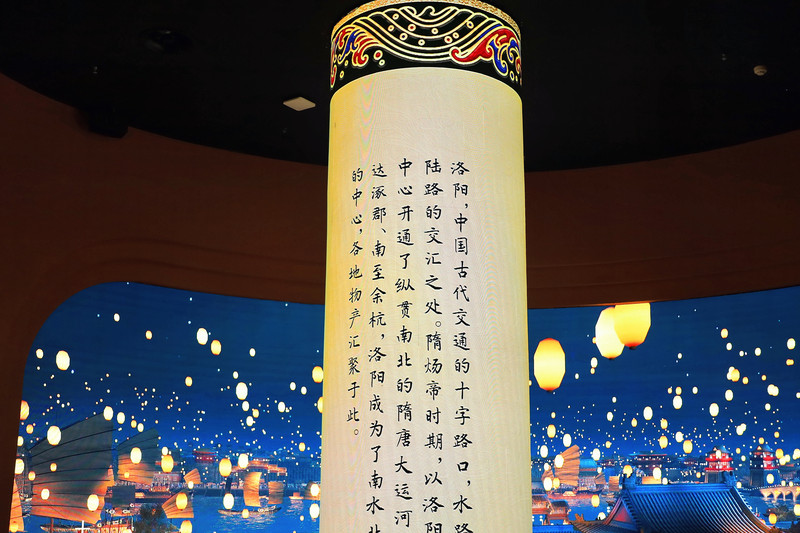 洛阳，中国古代交通的十字路口，水路
陆路的交汇之处。隋炀帝时期，以洛阳
中心开通了纵贯南北的隋唐大运河
达涿郡、南至余杭，洛阳成为了南水北
的中心，各地物产汇聚于此。